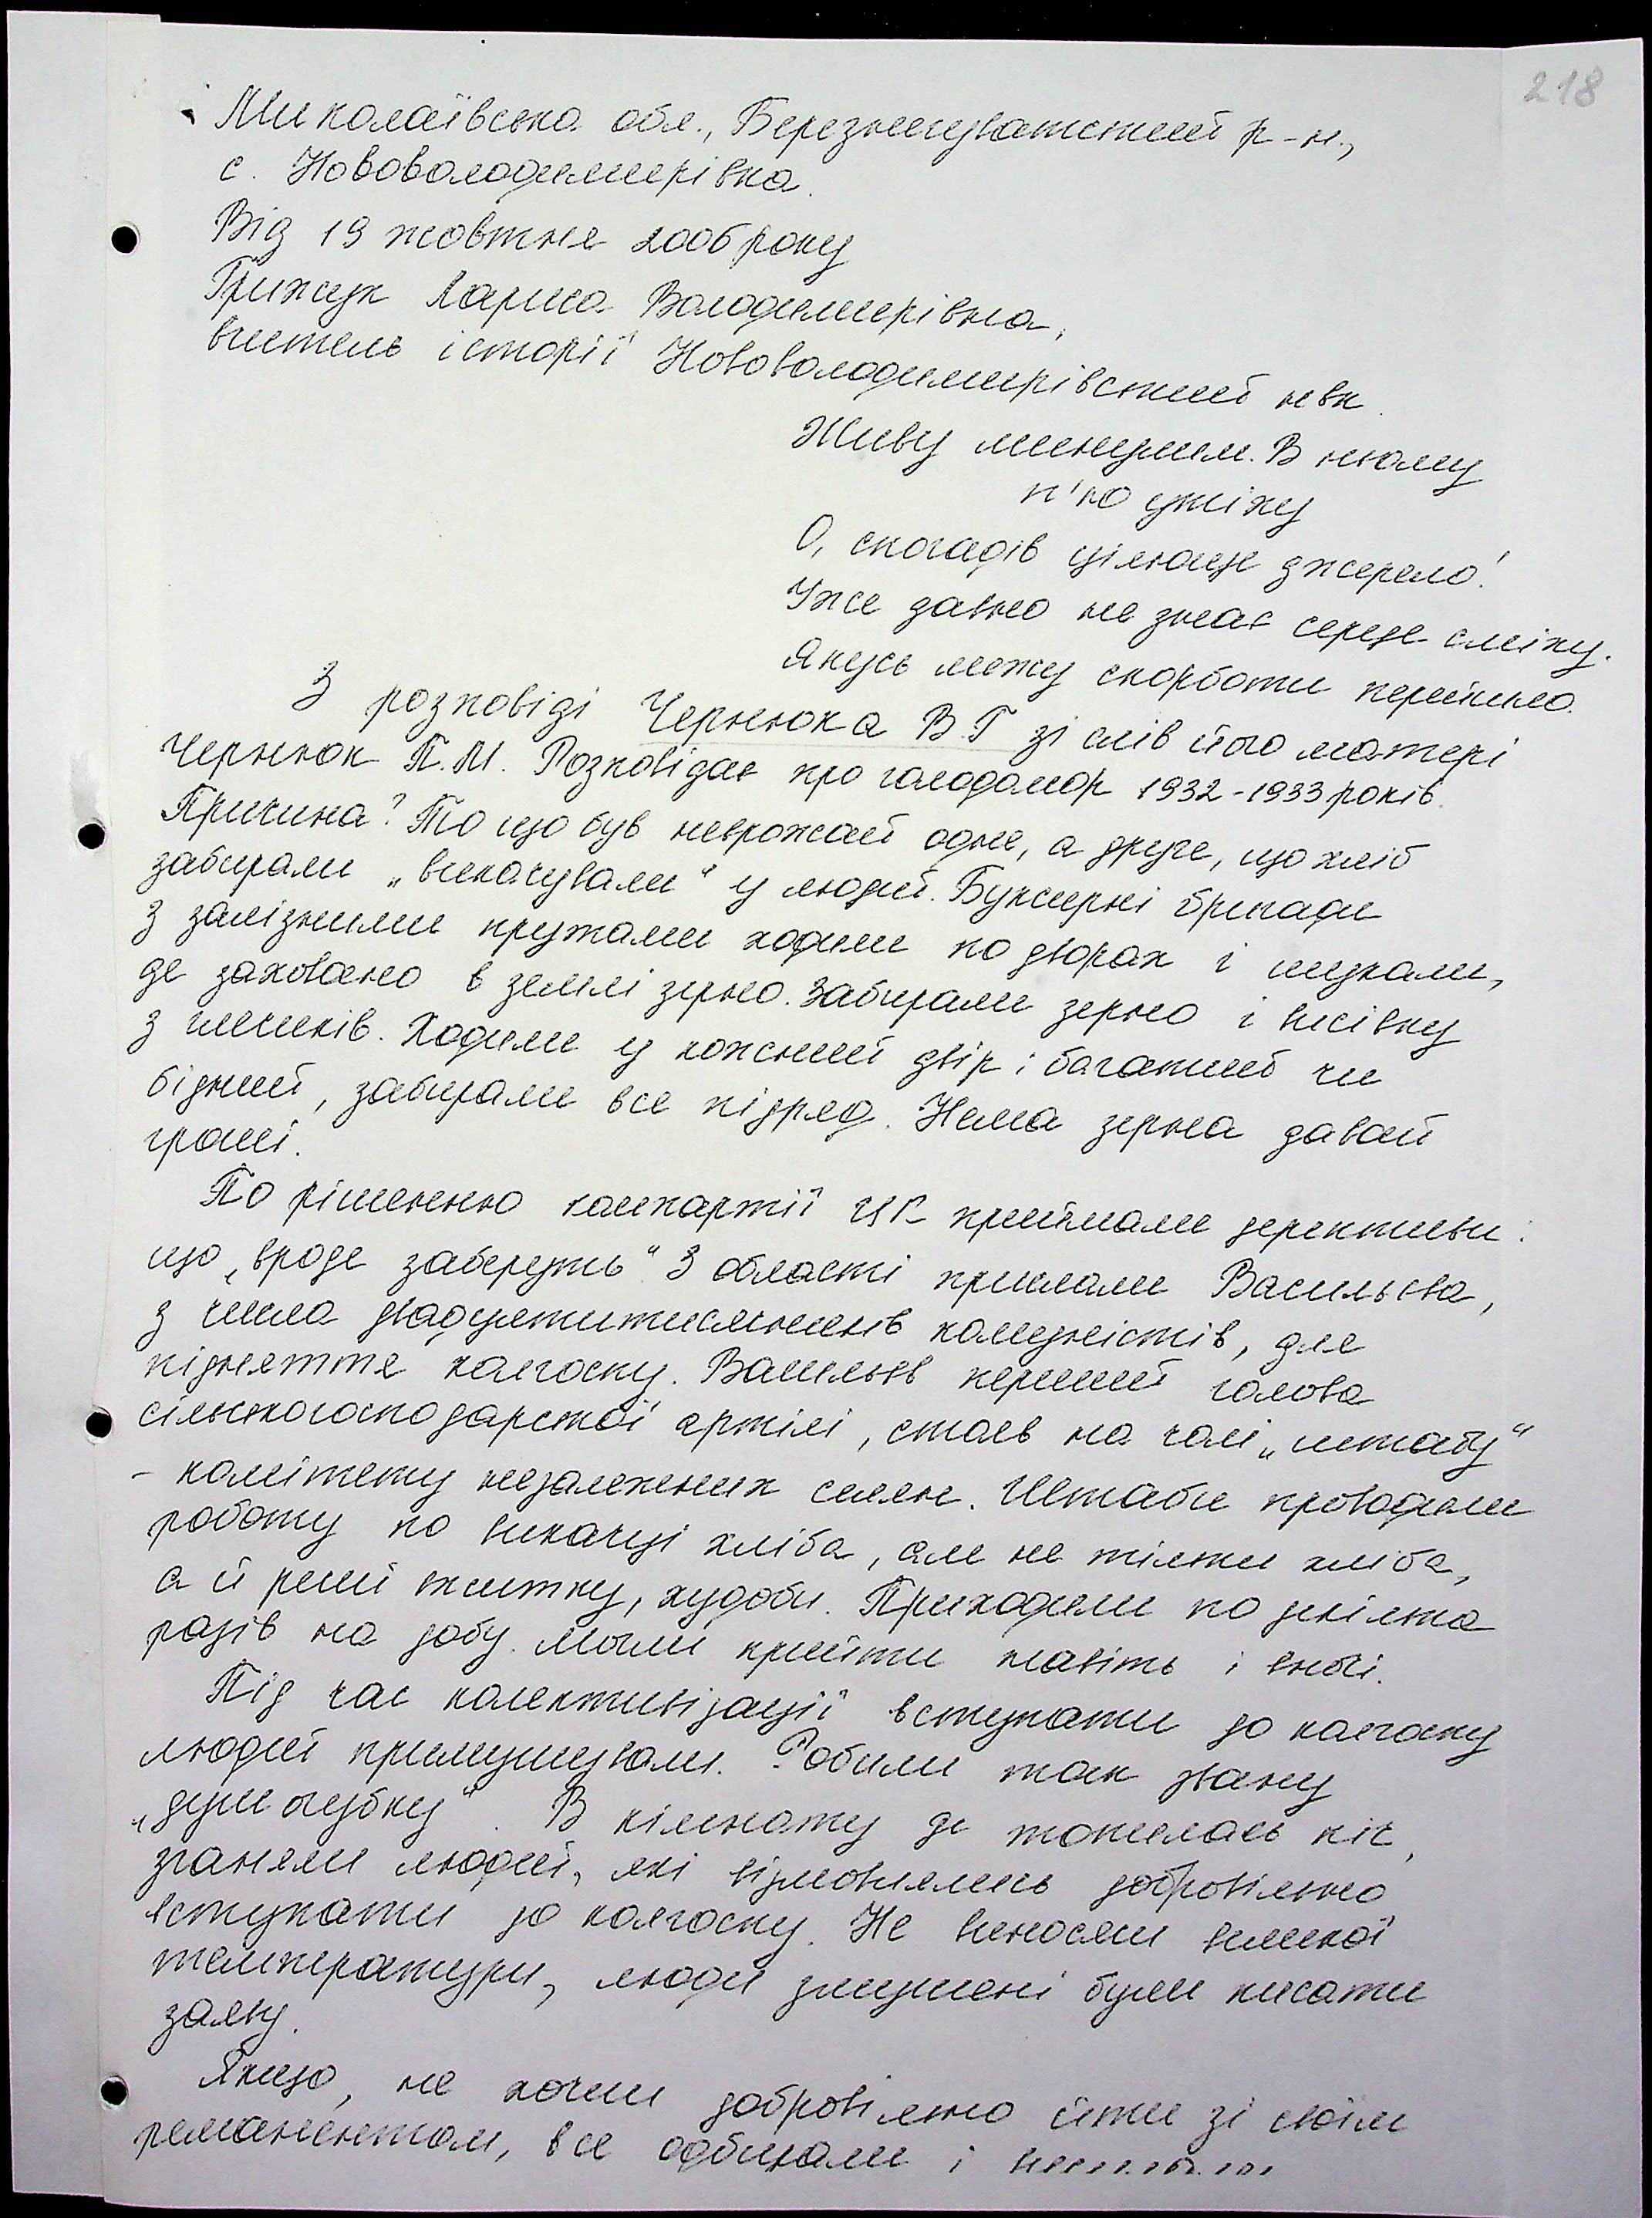 218
Миколаївська обл., Березнигуватський р-н.,
с. Нововолодимирівка.
Від 19 жовтня 2006 року
Грижук Лариса Володимирівна,
вчитель історії Нововолодимирівський нвк.
Живу минулим. В ньому
п'ю утіху
О, спогадів цілюще джерело!
Уже давно не знає серце сміху.
Якусь межу скорботи перейшло.
З розповіді Чернюка В.Г зі слів його матері
Чернюк П.М. Розповідає про голодомор 1932-1933 років.
Причина? То що був неврожай одне, а друге, що хліб
забирали „викачували" у людей. Буксирні бригади
з залізними пружами ходили по дворах і шукали,
де заховано в землі зерно. Забирали зерно і висівку
з глечиків. Ходили у кожний двір і багатий чи
бідний, забирали все підряд. Нема зерна давай
гроші.
По рішенню компартії ЦК приймали дерективи:
що „вроде заберуть" З області прислали Васильєва,
з числа двадцятитисячників комуністів, для
підняття колгоспу. Васильєв перший голова
сільськогосподарської артілі, стояв на чолі „штабу"
- комітету незаможних селян. Штаби проводили
роботу по викачці хліба, але не тільки хліба,
а й решті пожитку, худоби. Приходили по декілька
разів на добу. Могли прийти навіть і вночі.
Під час колективізації вступати до колгоспу
людей примушували. Робили так звану
„душогубку". В кімнату де топилась піч,
зганяли людей, які відмовлялись добровільно
вступати до колгоспу. Не виносячи високої
температури, люди змушені були писати
заяву.
Якщо, не хочеш добровільно йти зі своїм
реманентом, все одбирали і